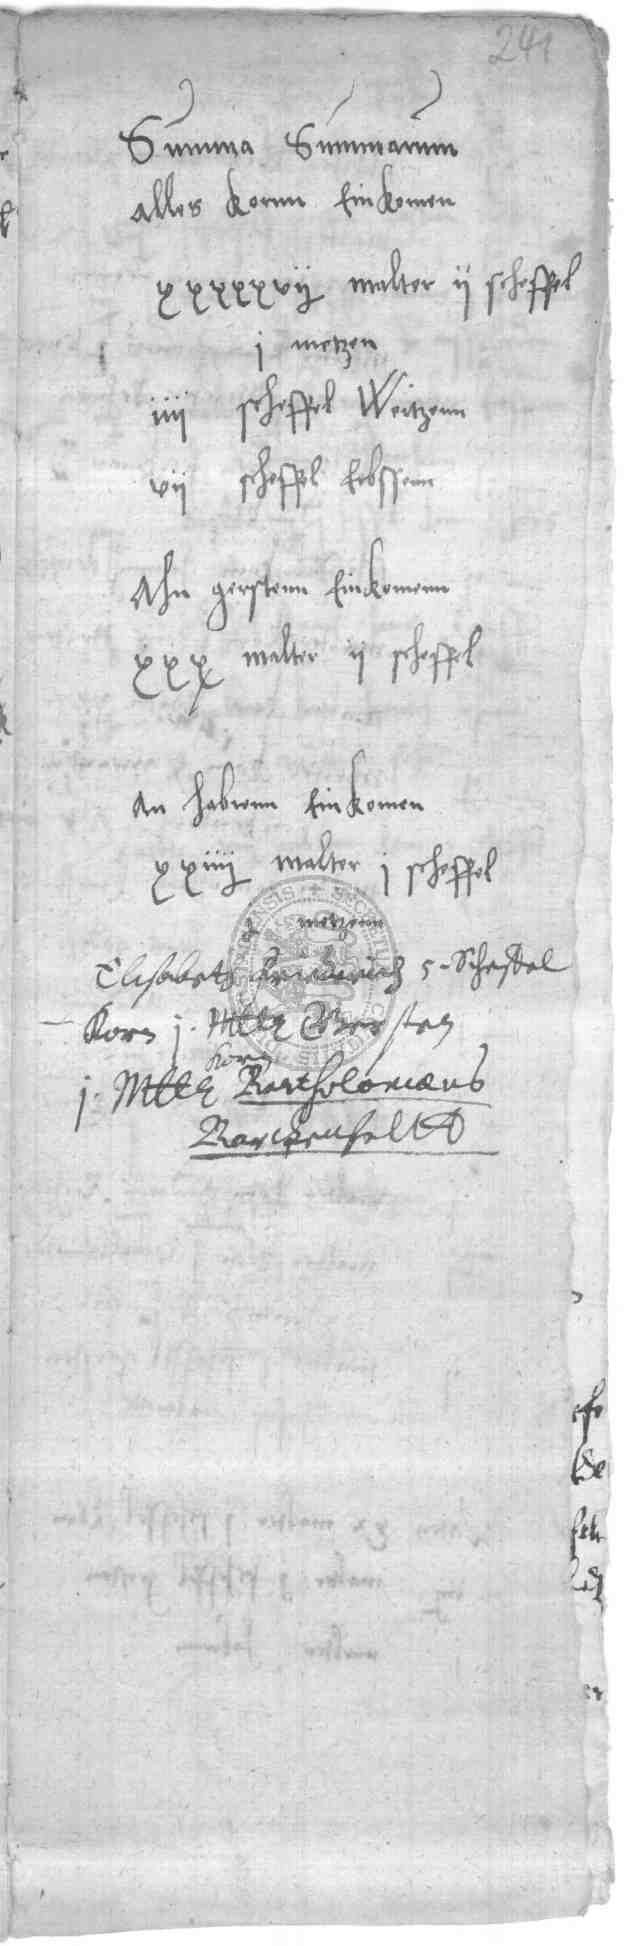 241
Summa Summarum
alles Kornn Einkomen
xxxxxvij malter ij scheffel
j metzen
iiij scheffel Weitzenn
vij scheffel Erbssenn
Ahn gerstenn Einkomenn
xxx malter ij scheffel
An habrenn Einkomen
xxiiij malter j scheffel
metzenn
Elisabetz Friederich 5 Scheffel
Korn j. Mltr Gersten
Korn
j. Mltr Bartholomaeus